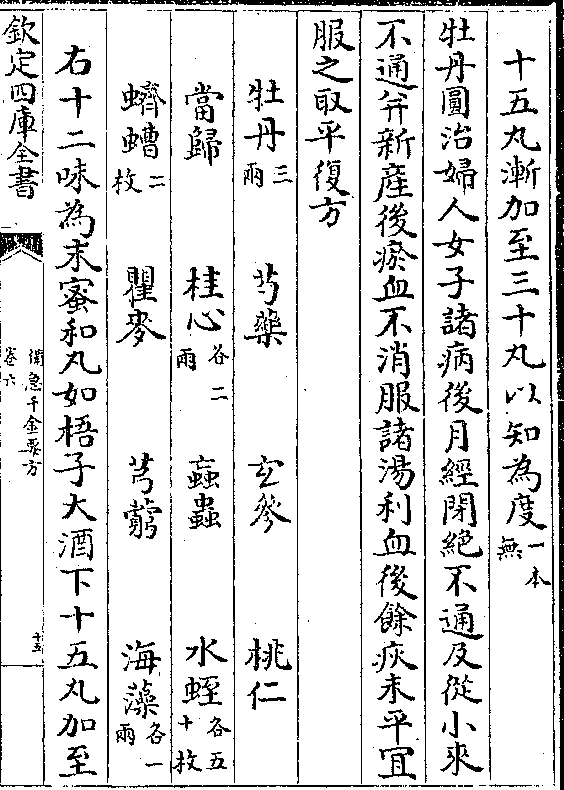 十五丸漸加至三十丸以知為度一本無
牡丹圓治婦人女子諸病後月經閉絶不通及從小來
不通并新産後瘀血不消服諸湯利血後餘疢未平宜
服之取平復方
牡丹三兩 芍藥 玄參 桃仁
當歸 桂心各二兩 蝱蟲 水蛭各五十枚
蠐螬二枚 瞿麥 芎藭 海藻各一兩
右十二味為末蜜和丸如梧子大酒下十五丸加至
欽定四庫全書
備急千金要方
卷六
十五